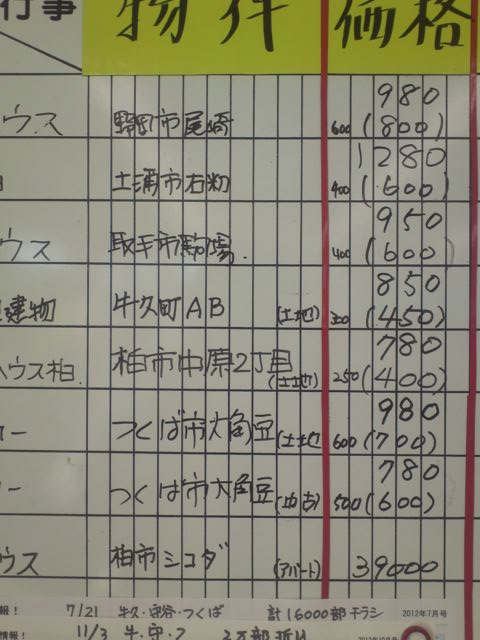 行事 物件 価格
ウス 野田市尾崎 600 980 (800)
土浦市右籾 400 1280 (600)
ウス 取手市駒場 400 950 (600)
建物 牛久町AB (土地) 300 850 (450)
ハウス柏. 柏市中原2丁目 (土地) 250 780 (400)
ー つくば市大角豆 (土地) 600 980 (700)
ー つくば市大角豆 (中古) 500 780 (600)
ウス 柏市シコダ (アパート) 39000
報! 7/21 牛久・守谷・つくば 計16000部チラシ 2012年7月号
情報! 11/3 牛・守・つ